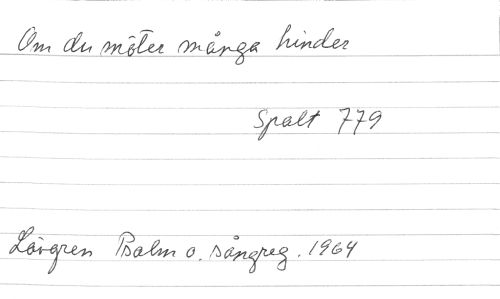 Om du möter många hinder
Spalt 779
Lövgren Psalm o. sångreg. 1964